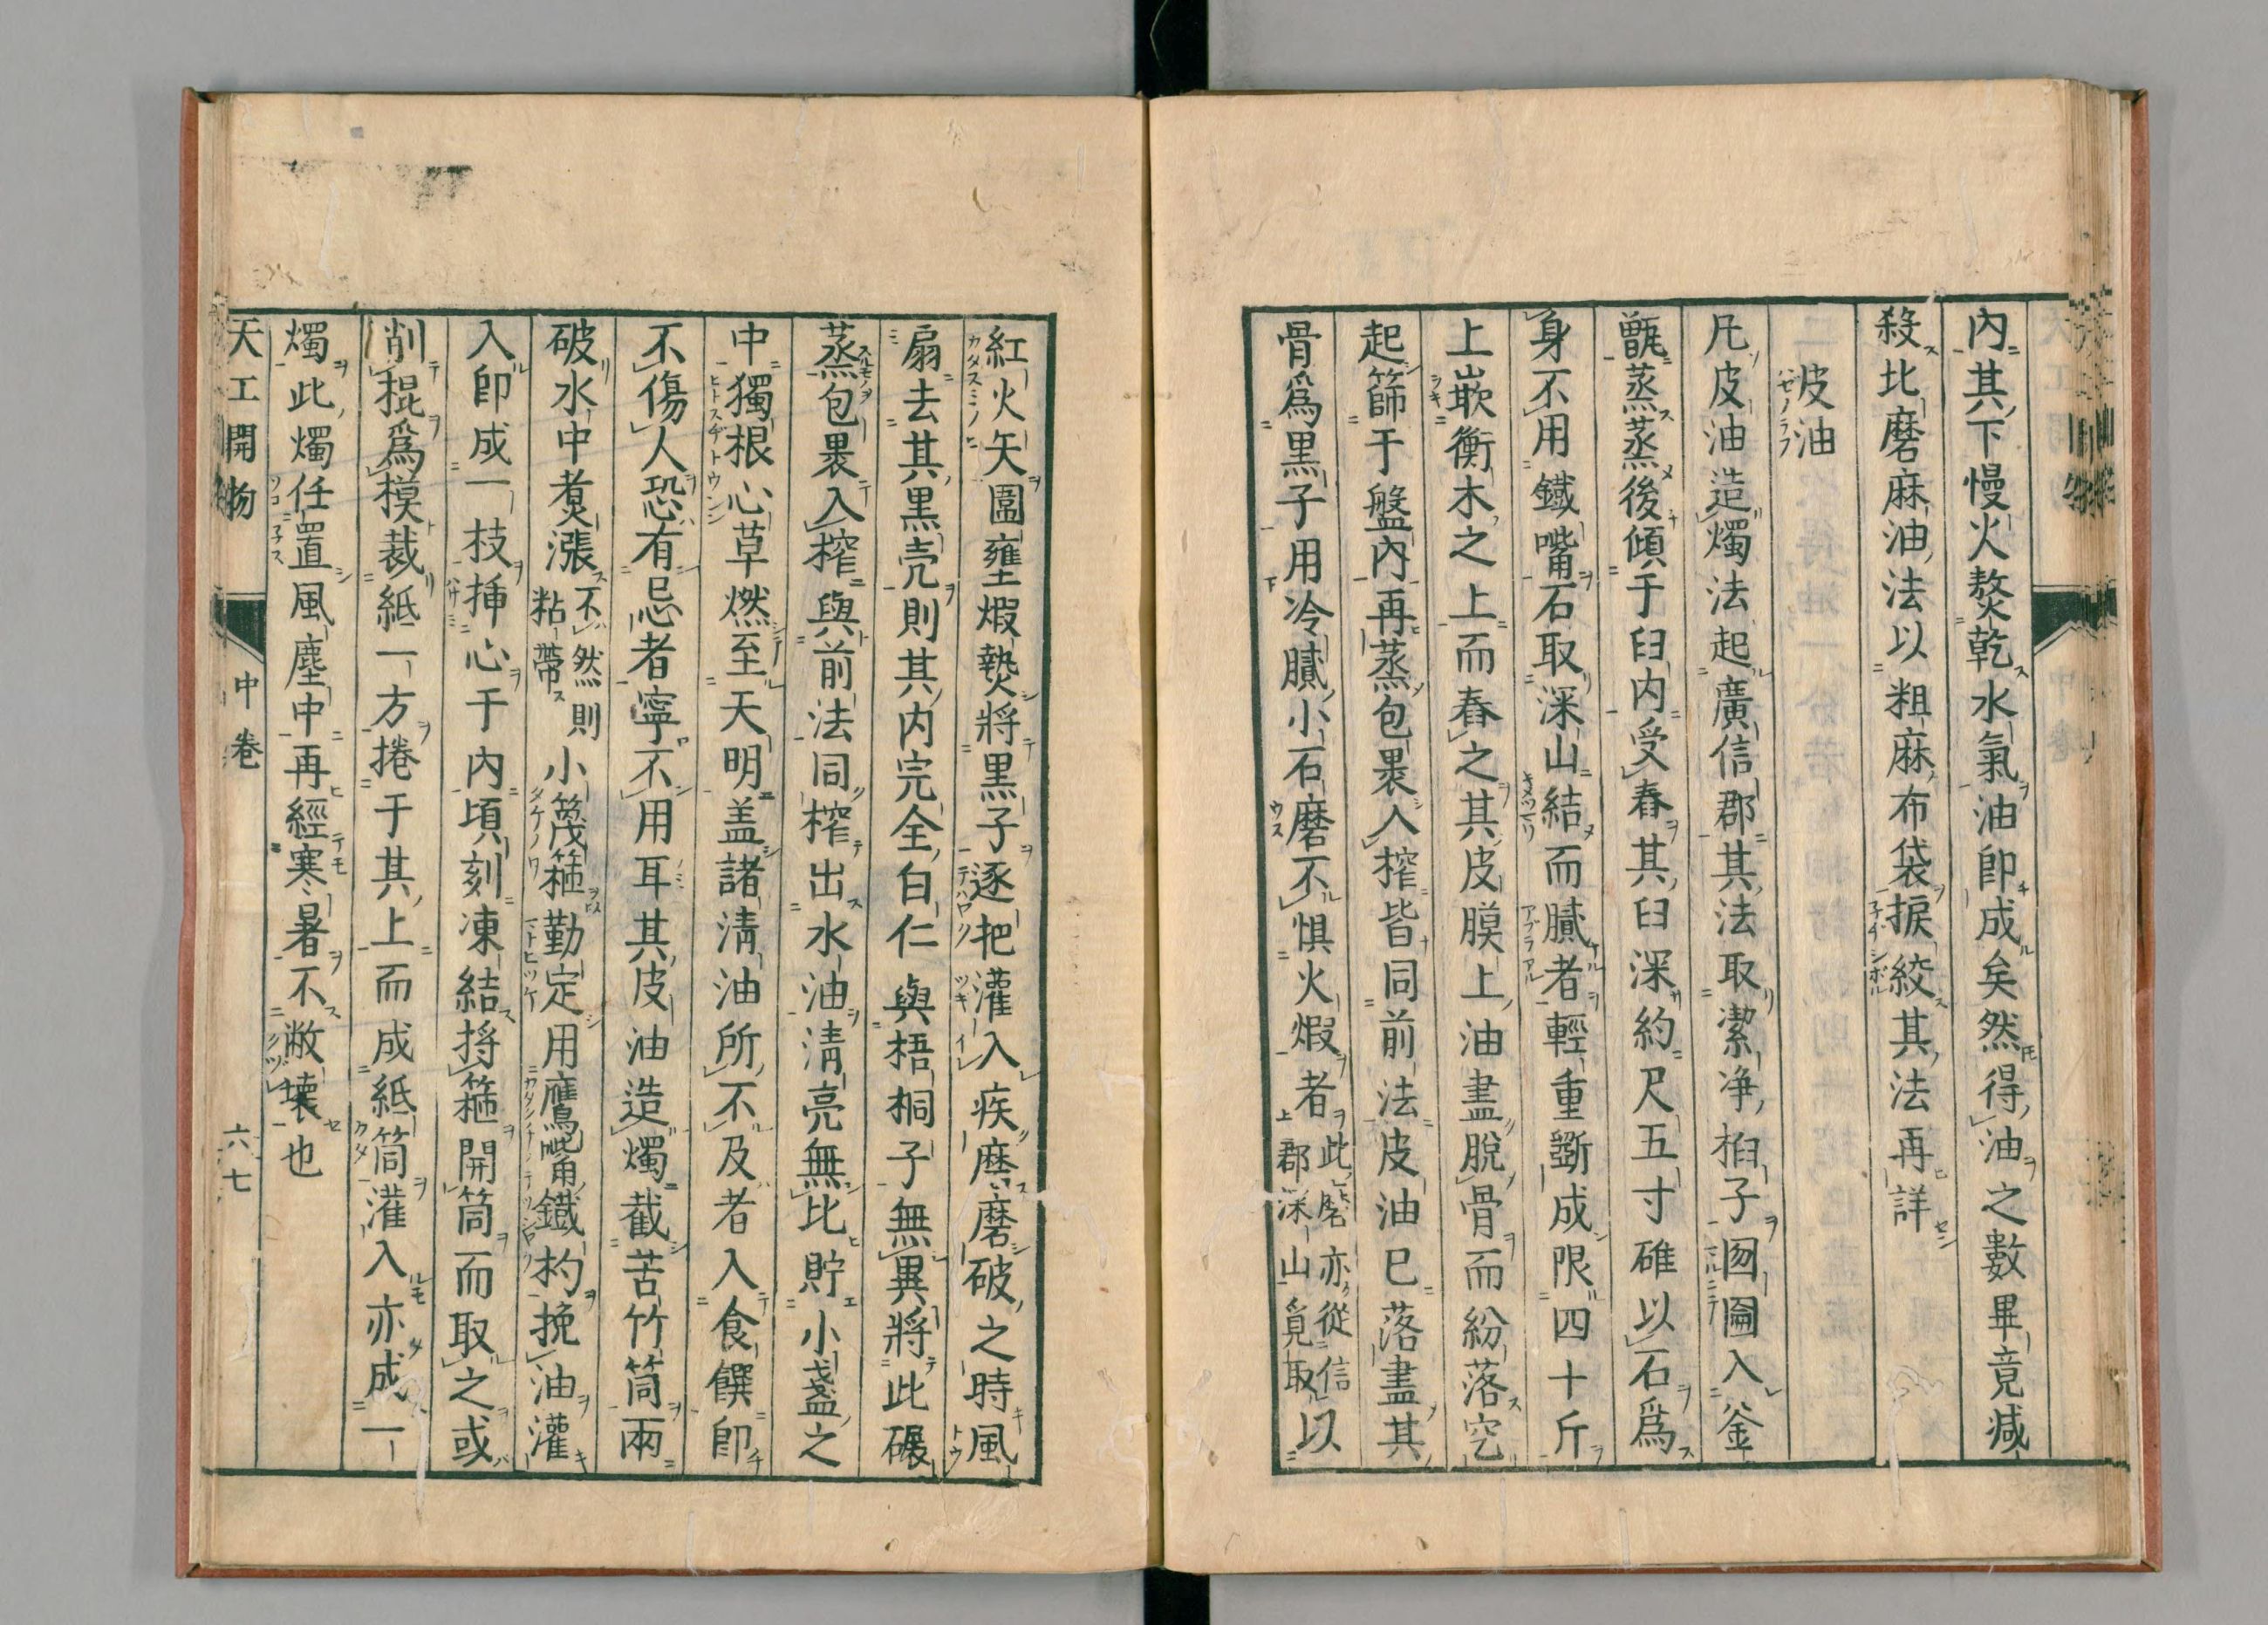 內其下慢火熬乾水氣油即成矣然得油之數畢竟減
殺北磨麻油法以粗麻布袋捩絞其法再詳
皮油
凡皮油造燭法起廣信郡其法取潔淨桕子囫圇入釜
甑蒸蒸後傾于臼內受舂其臼深約尺五寸碓以石爲
身不用鐵嘴石取深山結而膩者輕重斵成限四十斤
上嵌衡木之上而舂之其皮膜上油盡脫骨而紛落空
起篩于盤內再蒸包裹入榨皆同前法皮油已落盡其
骨爲黑子用冷膩小石磨不懼火煆者此磨亦從信郡深山覓取以
紅火矢圍壅煆熱將黑子逐把灌入疾磨磨破之時風
扇去其黑壳則其內完全白仁與梧桐子無異將此碾
蒸包裹入榨與前法同榨出水油清亮無比貯小盞之
中獨根心草燃至天明盖諸清油所不及者入食饌即
不傷人恐有忌者寧不用耳其皮油造燭截苦竹筒兩
破水中煑漲不然則粘帶小篾箍勒定用鷹嘴鐵杓挽油灌
入即成一枝揷心于內頃刻凍結捋箍開筒而取之或
削棍爲模裁紙一方捲于其上而成紙筒灌入亦成一
燭此燭任置風塵中再經寒暑不敝壞也
天工開物 中卷 六七